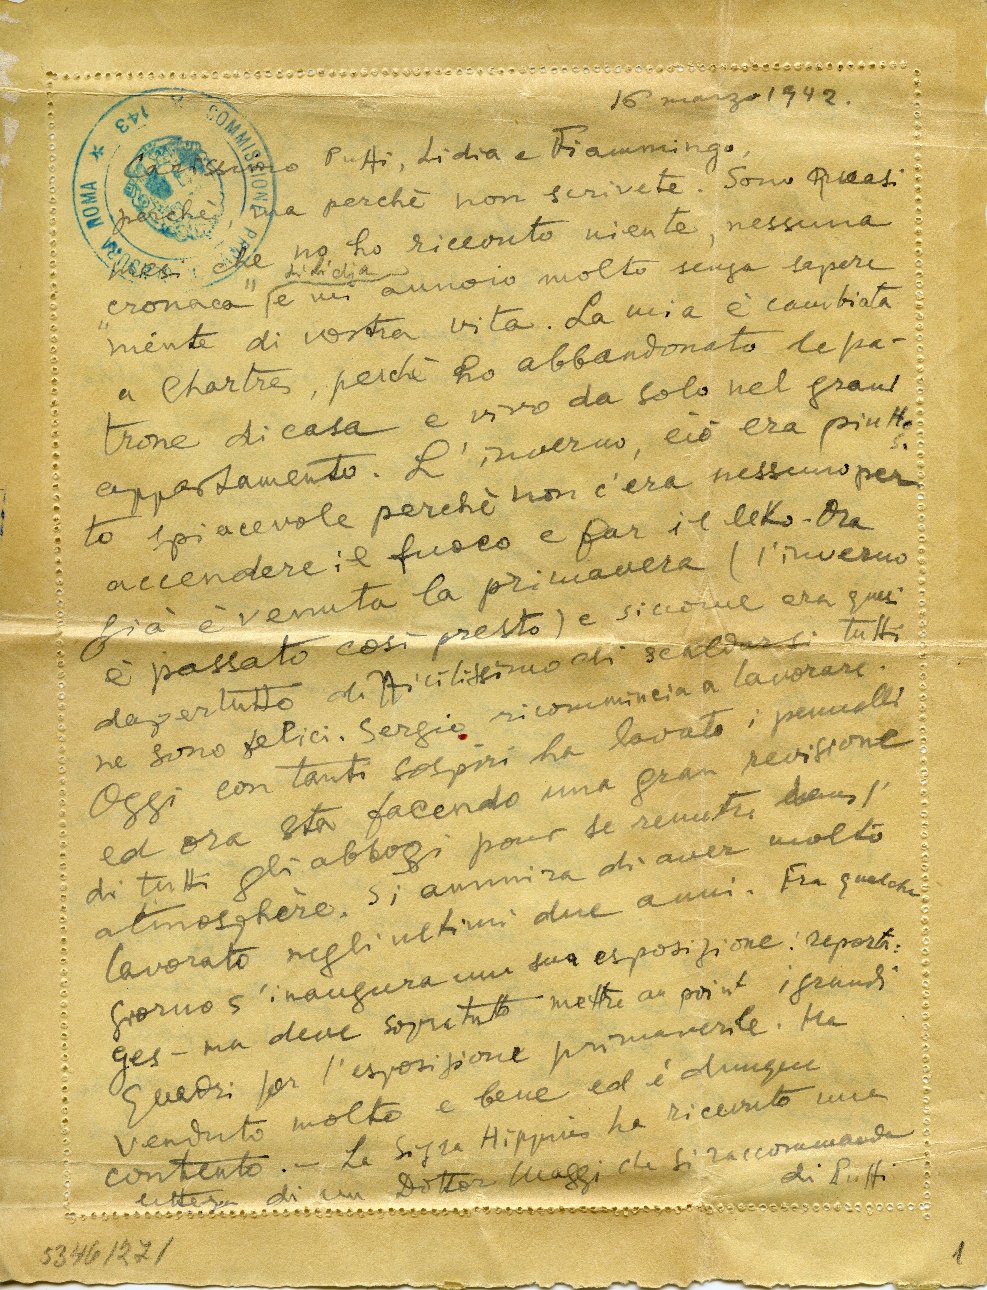 16 marzo 1942.
COMMISSIONE
143
ROMA
Carissimo Putti, Lidia e Fiammingo,
perchè, ma perchè non scrivete. Sono quasi
mesi che no ho ricevuto niente, nessuna
di Lidia
"cronaca" e mi annoio molto senza sapere
niente di vostra vita. La mia è cambiata
a Chartres, perchè ho abbandonato le pa-
trone di casa e vivo da solo nel grand
appartamento. L'inverno, ciò era piutto
to spiacevole perchè non c'era nessuno per
accendere il fuoco e far il letto. Ora
già è venuta la primavera (l'inverno
è passato così presto) e siccome era quasi
dapertutto difficilissimo di scaldarsi tutti
ne sono felici. Sergio ricommincia a lavorare.
Oggi con tanti sospiri ha lavato i pennelli
ed ora sta facendo una gran revisione
di tutti gli abbozzi pour se remettre dans l'
atmosphère. Si ammira di aver molto
lavorato negli ultimi due anni. Fra qualche
giorno s'inaugura una sua esposizione: reporta-
ges – ma deve sopratutto mettre au point i grandi
quadri per l'esposizione primaverile. Ha
venduto molto e bene ed è dunque
contento. – La Sigra Hippius ha ricevuto una
lettera di un Dottor Maggi che si raccommanda
di Putti
5346/27/
1